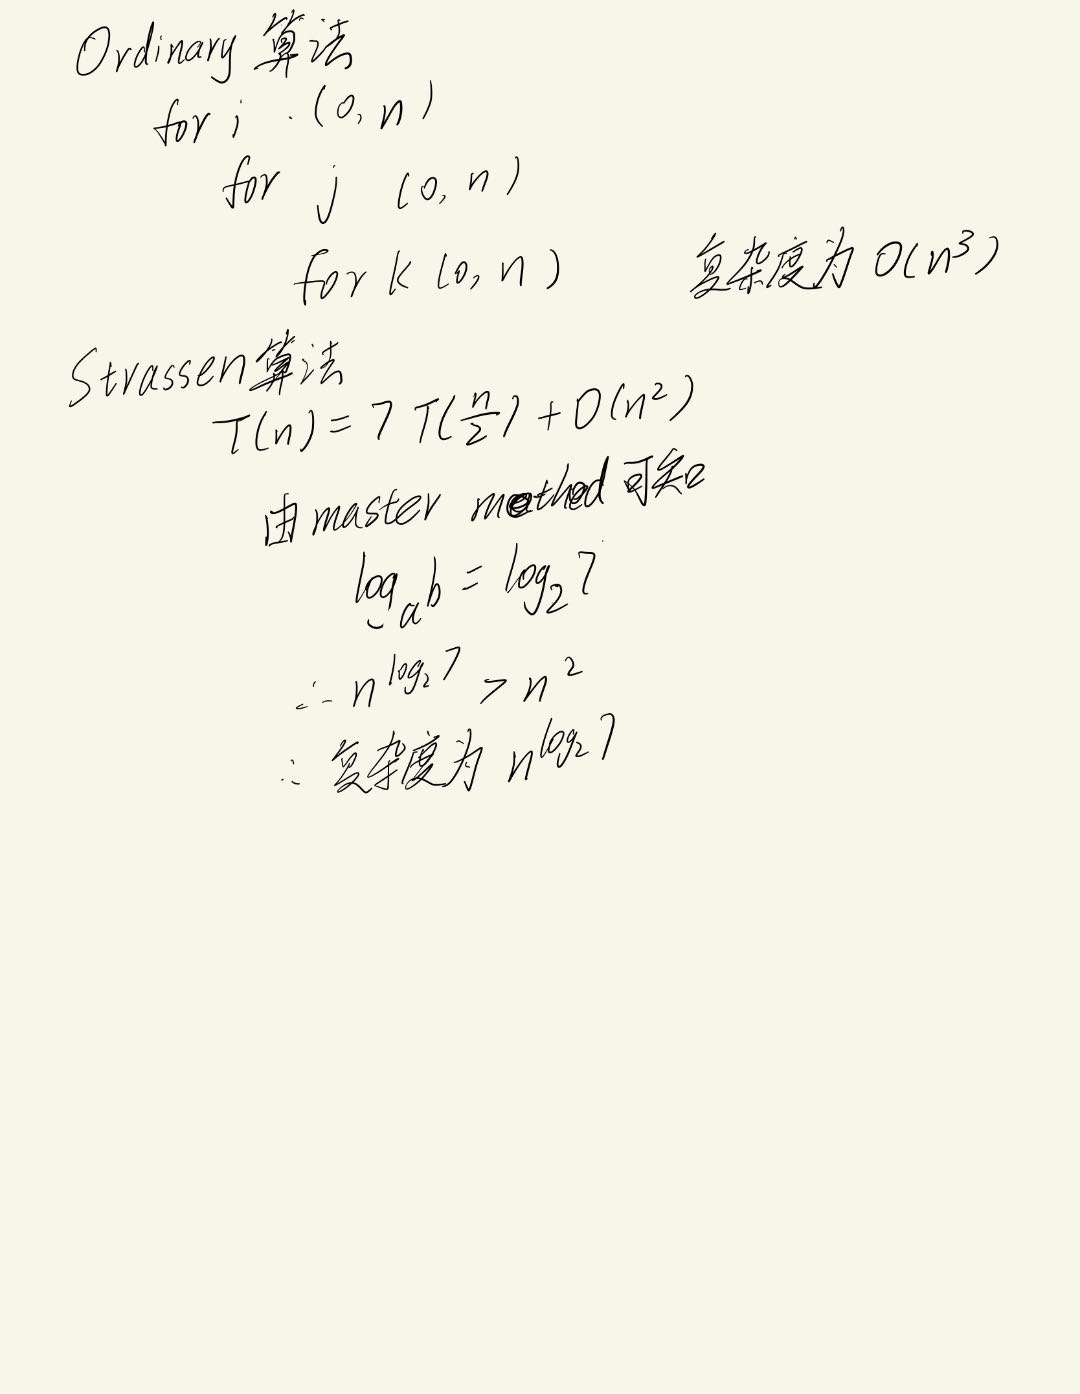 Ordinary 算法
for i . (0, n)
for j (0, n)
for k (0, n) 复杂度为 O(n³)
Strassen算法
T(n) = 7 T(n/2) + O(n²)
由 master method 可知
log_a b = log₂ 7
∴ n^{log₂ 7} > n²
∴ 复杂度为 n^{log₂ 7}